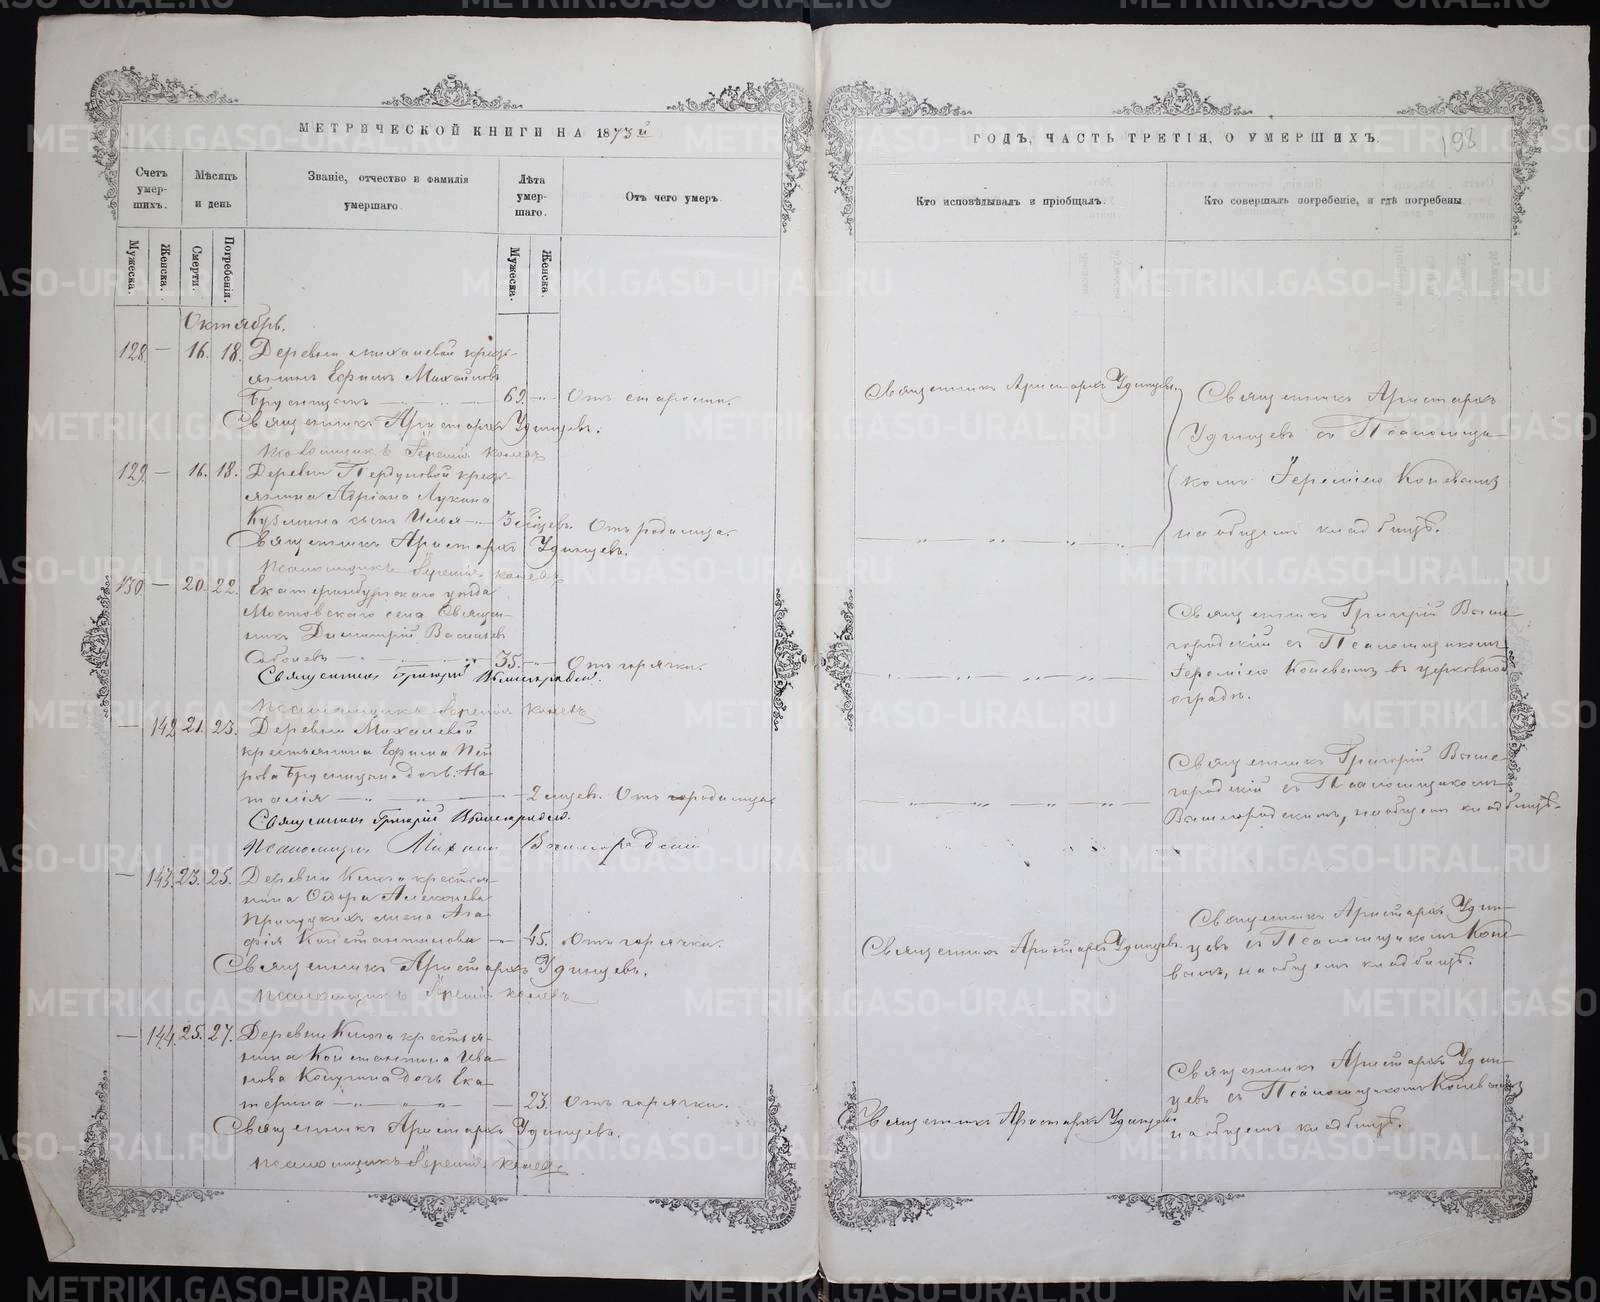 МЕТРИЧЕСКОЙ КНИГИ НА 1873й
ГОДЪ, ЧАСТЬ ТРЕТІЯ, О УМЕРШИХЪ.
198
Счетъ умерших.
Мѣсяцъ и день
Званіе, отчество и фамилія умершаго.
Лѣта умершаго.
Отъ чего умеръ.
Кто исповѣдывалъ и пріобщалъ.
Кто совершалъ погребеніе, и гдѣ погребены.
Мужеска.
Женска.
Смерти.
Погребенія.
Мужеска.
Женска.
Октябрь.
128. — 16. 18. Деревни Михалевой кресть-
янинъ Ефимъ Михайловъ
Брусницынъ 69. Отъ старости.
Священникъ Аристархъ Удинцевъ.
Псаломщикъ Іеремія Коневъ
Священникъ Аристархъ Удинцевъ.
Священникъ Аристархъ
Удинцевъ съ Псаломщи-
комъ Іереміею Коневымъ
на общемъ кладбищѣ.
129. — 16. 18. Деревни кресть-
янина Адріана Лукина
Кузмина сынъ Илья 3 мѣсяцев. Отъ родимца.
Священникъ Аристархъ Удинцевъ.
Псаломщикъ Іеремія Коневъ
130 — 20. 22. Екатеринбургскаго уѣзда
Мостовскаго села Священ-
никъ Димитрій Васильевъ
35. Отъ горячки.
Священникъ Григорій Вышегородскій.
Псаломщикъ Іеремія Коневъ
Священникъ Григорій Выше-
городскій съ Псаломщикомъ
Іереміею Коневымъ въ церковной
оградѣ.
— 142 21. 23. Деревни Михалевой
крестьянина Ефима Пет-
рова Брусницына дочь На-
талія 2 мѣсцев. Отъ родимца
Священникъ Григорій Вышегородскій.
Псаломщикъ Михаилъ Вышегородскій
Священникъ Григорій Выше-
городскій съ Псаломщикомъ
Вышегородскимъ, на общемъ кладбищѣ.
— 143. 23. 25. Деревни Ключа крестья-
нина Ѳедора Алексѣева
жена Ага-
фія Константинова 45. Отъ горячки.
Священникъ Аристархъ Удинцевъ.
Псаломщикъ Іеремія Коневъ
Священникъ Аристархъ Удинцевъ.
Священникъ Аристархъ Удин-
цевъ съ Псаломщикомъ Коне-
вымъ, на общемъ кладбищѣ.
— 144. 25. 27. Деревни Ключа крестья-
нина Константина Ива-
нова дочь Ека-
терина 23. Отъ горячки.
Священникъ Аристархъ Удинцевъ.
Псаломщикъ Іеремія Коневъ
Священникъ Аристархъ Удинцевъ.
Священникъ Аристархъ Удин-
цевъ съ Псаломщикомъ Коневымъ
на общемъ кладбищѣ.
METRIKI.GASO-URAL.RU